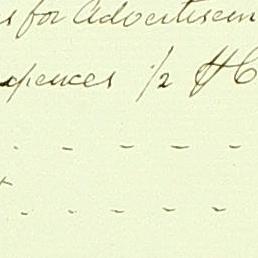 s for Advertisem
xpences 1/2 HC